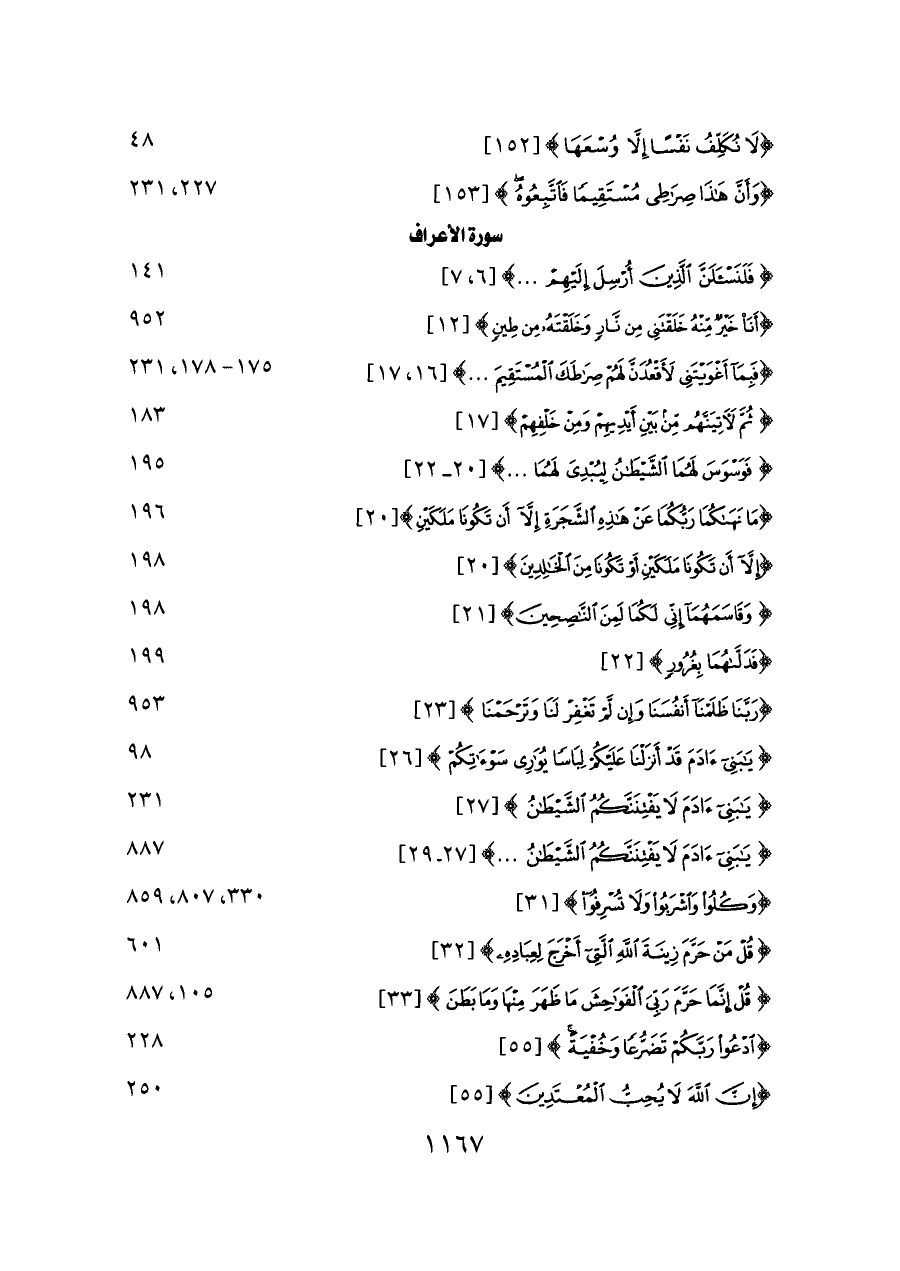 ﴿لَا نُكَلِّفُ نَفْسًا إِلَّا وُسْعَهَا ﴾ [١٥٢] ٤٨
﴿وَأَنَّ هَٰذَا صِرَٰطِى مُسْتَقِيمًا فَٱتَّبِعُوهُ ۖ ﴾ [١٥٣] ٢٢٧، ٢٣١
سورة الأعراف
﴿ فَلَنَسْـَٔلَنَّ ٱلَّذِينَ أُرْسِلَ إِلَيْهِمْ ...﴾ [٦، ٧] ١٤١
﴿أَنَا۠ خَيْرٌ مِّنْهُ خَلَقْتَنِى مِن نَّارٍ وَخَلَقْتَهُۥ مِن طِينٍ﴾ [١٢] ٩٥٢
﴿فَبِمَآ أَغْوَيْتَنِى لَأَقْعُدَنَّ لَهُمْ صِرَٰطَكَ ٱلْمُسْتَقِيمَ ...﴾ [١٦، ١٧] ١٧٥ - ١٧٨، ٢٣١
﴿ ثُمَّ لَأَتِيَنَّهُم مِّنۢ بَيْنِ أَيْدِيهِمْ وَمِنْ خَلْفِهِمْ﴾ [١٧] ١٨٣
﴿ فَوَسْوَسَ لَهُمَا ٱلشَّيْطَٰنُ لِيُبْدِىَ لَهُمَا ...﴾ [٢٠ـ ٢٢] ١٩٥
﴿مَا نَهَىٰكُمَا رَبُّكُمَا عَنْ هَٰذِهِ ٱلشَّجَرَةِ إِلَّآ أَن تَكُونَا مَلَكَيْنِ﴾[٢٠] ١٩٦
﴿إِلَّآ أَن تَكُونَا مَلَكَيْنِ أَوْ تَكُونَا مِنَ ٱلْخَٰلِدِينَ﴾ [٢٠] ١٩٨
﴿ وَقَاسَمَهُمَآ إِنِّى لَكُمَا لَمِنَ ٱلنَّٰصِحِينَ﴾ [٢١] ١٩٨
﴿فَدَلَّىٰهُمَا بِغُرُورٍ﴾ [٢٢] ١٩٩
﴿رَبَّنَا ظَلَمْنَآ أَنفُسَنَا وَإِن لَّمْ تَغْفِرْ لَنَا وَتَرْحَمْنَا ﴾ [٢٣] ٩٥٣
﴿ يَٰبَنِىٓ ءَادَمَ قَدْ أَنزَلْنَا عَلَيْكُمْ لِبَاسًا يُوَٰرِى سَوْءَٰتِكُمْ ﴾ [٢٦] ٩٨
﴿ يَٰبَنِىٓ ءَادَمَ لَا يَفْتِنَنَّكُمُ ٱلشَّيْطَٰنُ ﴾ [٢٧] ٢٣١
﴿ يَٰبَنِىٓ ءَادَمَ لَا يَفْتِنَنَّكُمُ ٱلشَّيْطَٰنُ ...﴾ [٢٧ـ ٢٩] ٨٨٧
﴿وَكُلُوا۟ وَٱشْرَبُوا۟ وَلَا تُسْرِفُوٓا۟ ﴾ [٣١] ٣٣٠، ٨٠٧، ٨٥٩
﴿ قُلْ مَنْ حَرَّمَ زِينَةَ ٱللَّهِ ٱلَّتِىٓ أَخْرَجَ لِعِبَادِهِۦ﴾ [٣٢] ٦٠١
﴿ قُلْ إِنَّمَا حَرَّمَ رَبِّىَ ٱلْفَوَٰحِشَ مَا ظَهَرَ مِنْهَا وَمَا بَطَنَ ﴾ [٣٣] ١٠٥، ٨٨٧
﴿ٱدْعُوا۟ رَبَّكُمْ تَضَرُّعًا وَخُفْيَةً ۚ ﴾ [٥٥] ٢٢٨
﴿إِنَّ ٱللَّهَ لَا يُحِبُّ ٱلْمُعْتَدِينَ ﴾ [٥٥] ٢٥٠
١١٦٧